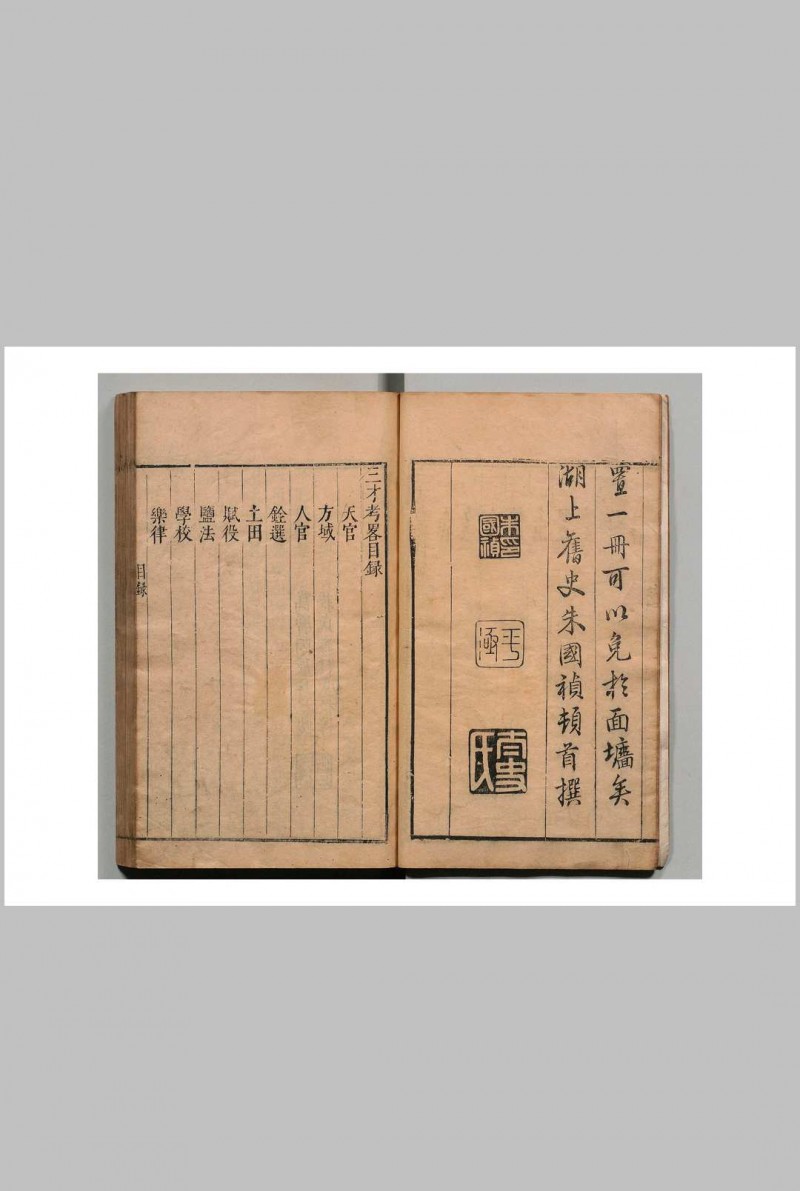 置一冊可以免於面墻矣
湖上舊史朱國禎頓首撰
朱印國禎
平涵
太史氏
三才考畧目録
天官
方域
人官
銓選
土田
賦役
鹽法
學校
樂律
目録